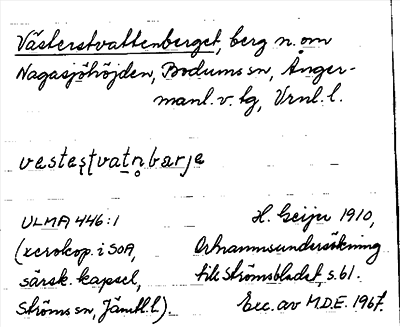 Västerstvattenberget, berg n. om
Nagasjöhöjden, Bodums sn, Ånger-
manl. v. tg, Vrnl. l.
vastaʂtvatn̥barja
ULMA 446:1
(xerokop. i SOA,
särsk. kapsel,
Ströms sn, Jämtl. l.)
H. Geijer 1910,
Ortnamnsundersökning
till Strömsbladet, s. 61.
Exc. av M.D.E. 1967.